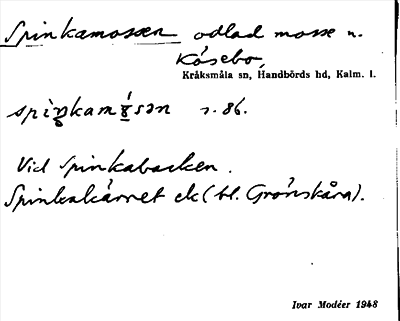 Spinkamossen odlad mosse n.
Kåsebo,
Kråksmåla sn, Handbörds hd, Kalm. l.
s. 86.
Vid Spinkabacken.
Spinkakärret ek (bl. Grönskåra).
Ivar Modéer 1948